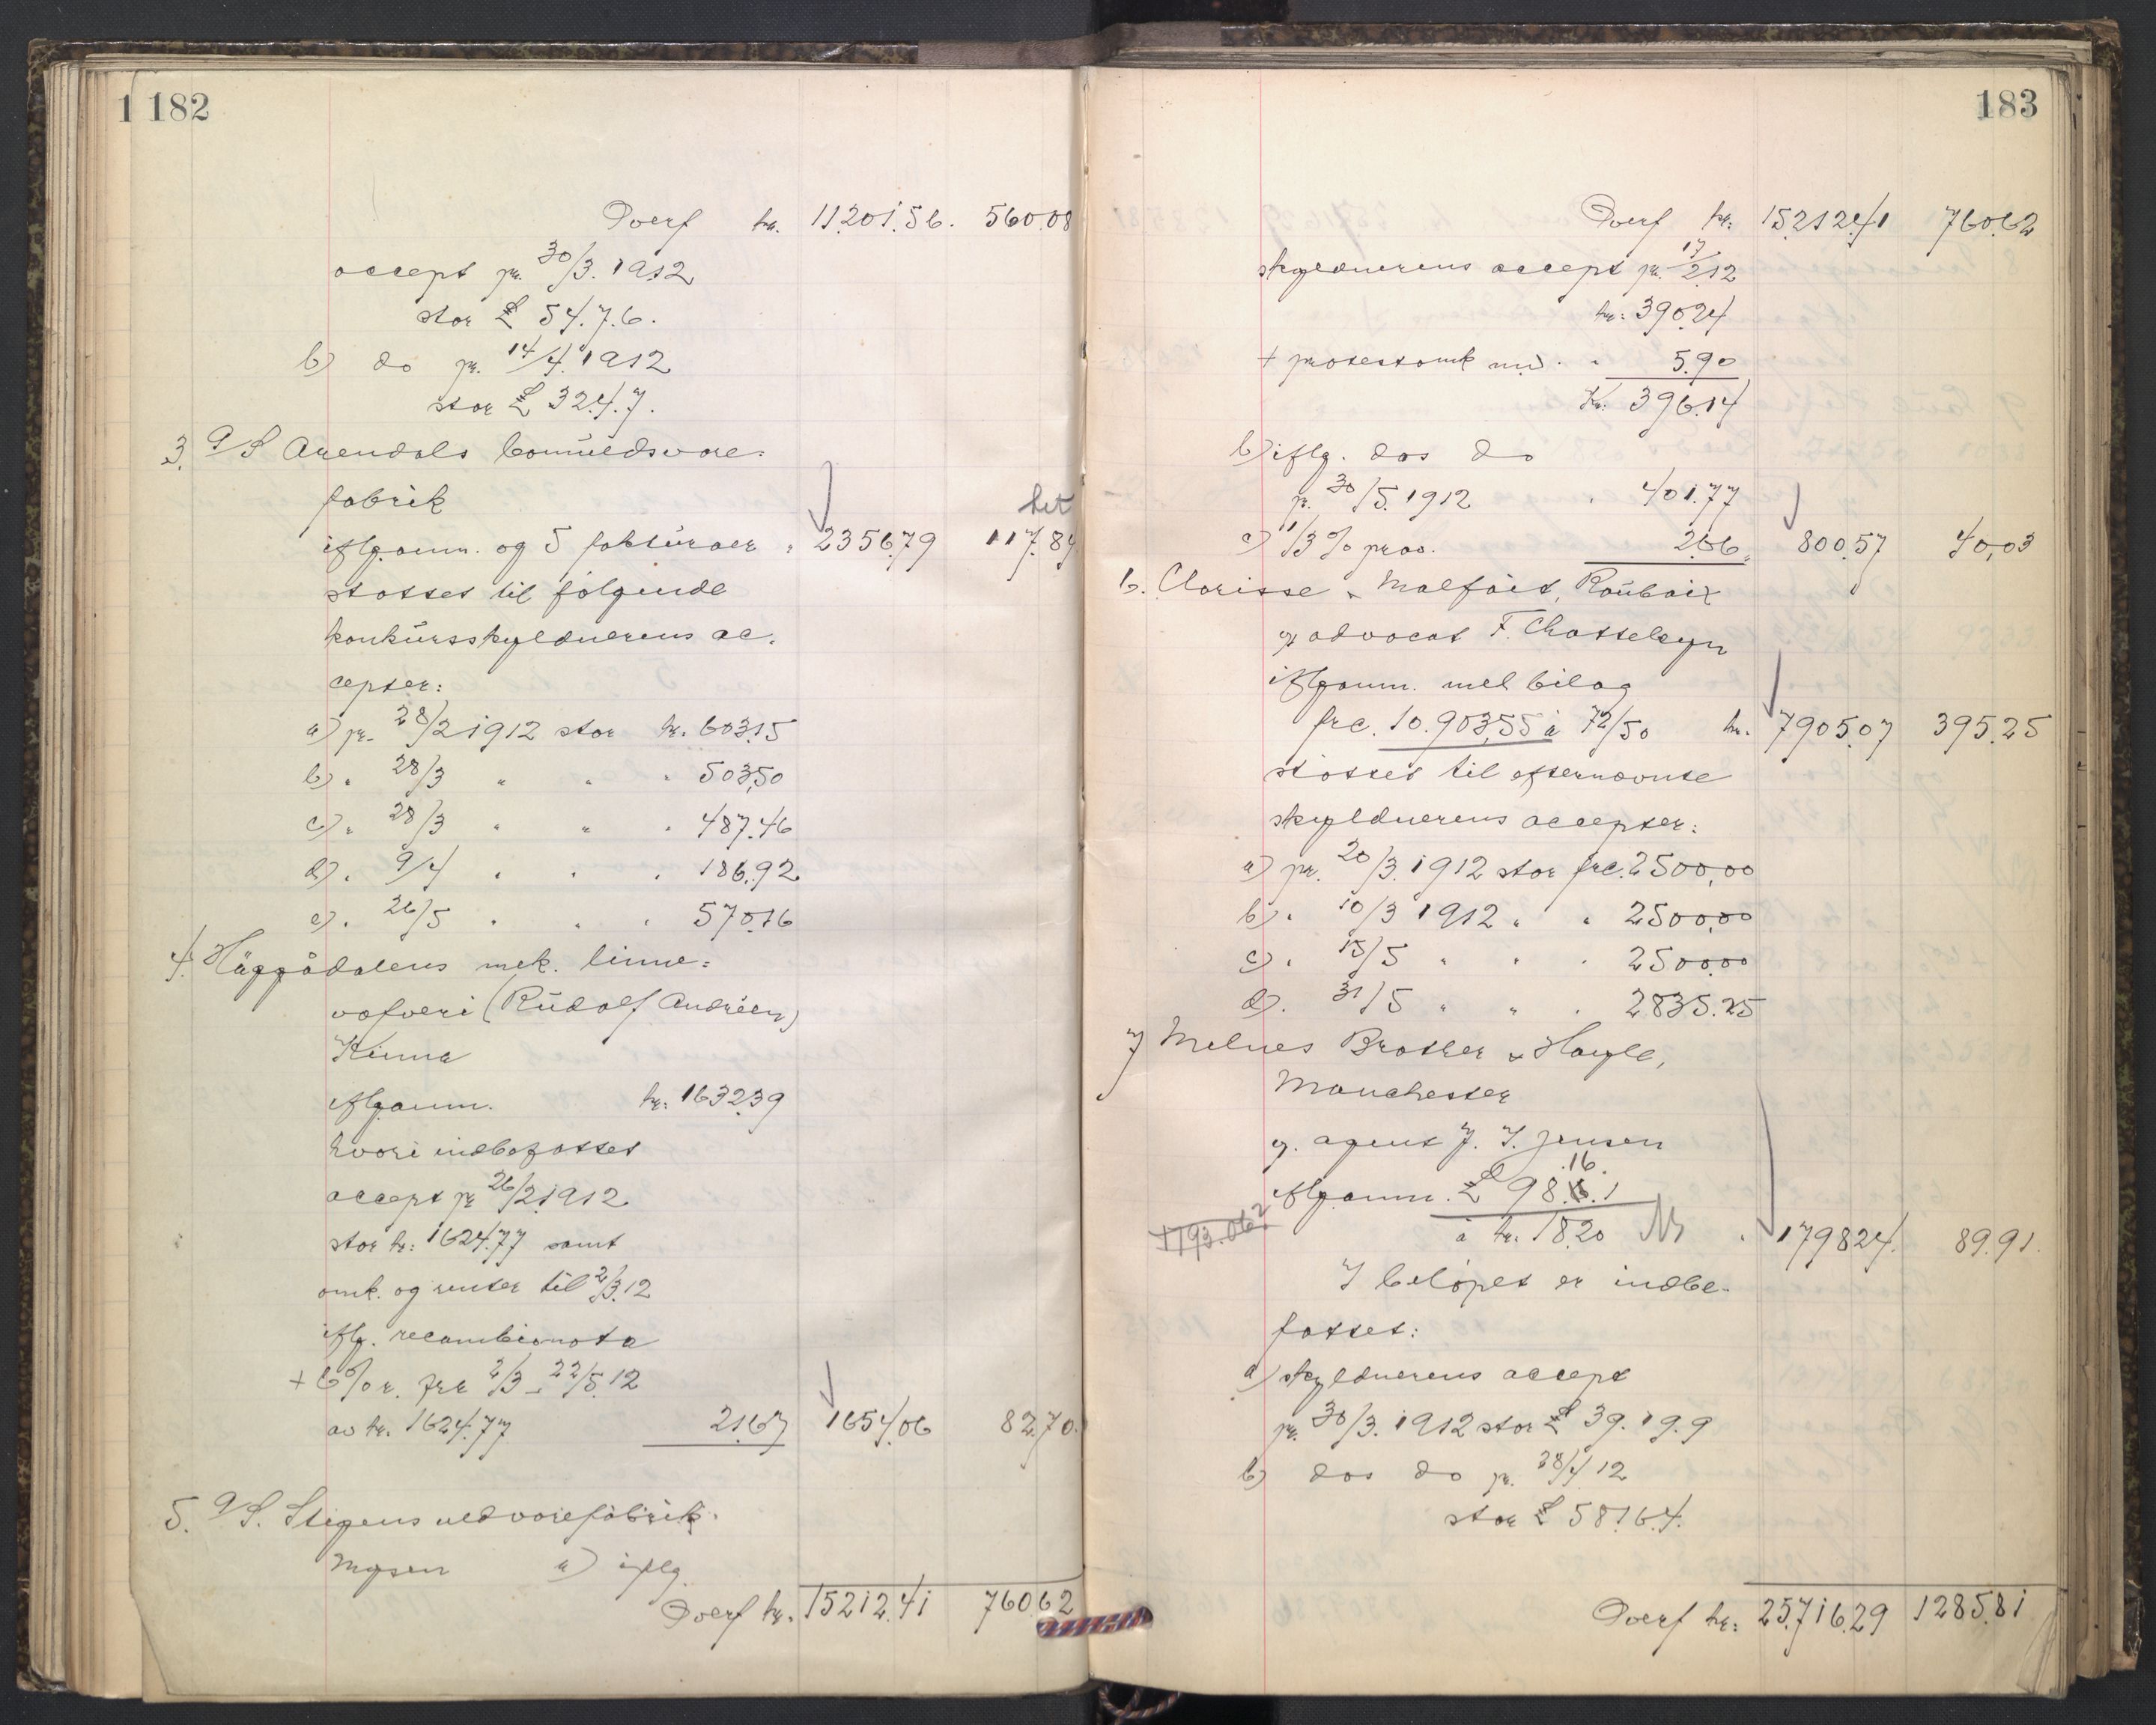 1 182
Overf kr. 11201.56. 560.08
accept pr. 30/3. 1912
stor £ 54.7.6.
b) do pr. 14/4. 1912
stor £ 32.4.7.
3. A/S Arendals bomuldsvare=
fabrik
iflg. anm. og 5 fakturaer " 2356,79 117.84
støttet til følgende
konkursskyldnerens ac=
cepter:
a) pr. 28/2 1912 stor kr. 603.15
b) " 28/3 " " " 503,50
c) " 28/3 " " " 487.46
d) " 9/4 " " " 186.92
e) " 26/5 " " " 570.16
4. Häggådalens mek. linne=
väfveri (Rudolf Andréen)
Kinna
iflg. anm. kr. 1632.39
hvori indbefattet
accept pr 26/2 1912
stor kr: 1624.77 samt
omk. og renter til 2/3.12
iflg. recambionota
+ 6% r. fra 2/3 - 22/5.12
av kr. 1624.77 21.67 1654.06 82.70.
5. A/S. Stigens uldvarefabrik.
Mysen a) iflg.
Overf kr. 15212.41 760.62
183
Overf kr: 15212.41 760.62
skyldnerens accept pr. 17/2 12
kr: 390.24
+ protestomk m.v. " 5.90
Kr: 396.14
b) iflg. dos do
pr. 30/5. 1912 " 401.77
c) 1/3 % prov. 2.66 " 800.57 40,03
6. Clarisse & Malfait, Roubaix
v/ advocat F. Chatteleyn
iflg. anm. med bilag
frc. 10.903,55 à 72/50 kr. 7905.07 395.25
støttet til efternævnte
skyldnerens accepter:
a) pr. 20/3. 1912 stor frc. 2500,00
b) " 10/3 1912 " " 2500,00
c) " 15/5 " " " 2500,00
d) " 31/5 " " " 2835.25
7 Melnes Brother & Hoyle,
Manchester
v. agent J. J. Jensen
.16.
iflg. anm. £ 98.16.1
1793.06?
à kr. 18.20 " 1798.24. 89.91.
I beløpet er indbe=
fattet:
a) skyldnerens accept
pr. 30/3. 1912 stor £ 39.19.9
b) dos do pr. 28/4 12
stor £ 58.16.4.
Overf kr: 25.716.29 1285.81